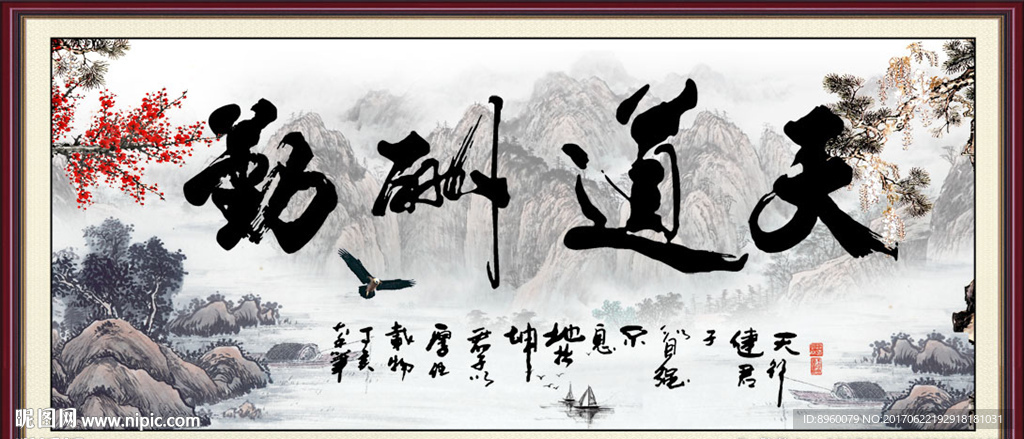 天道酬勤
天行
健君
子
以自强
不
息
地势
坤
君子以
厚德
載物
丁亥
昵图网 www.nipic.com
ID:8960079 NO:20170622192918181031